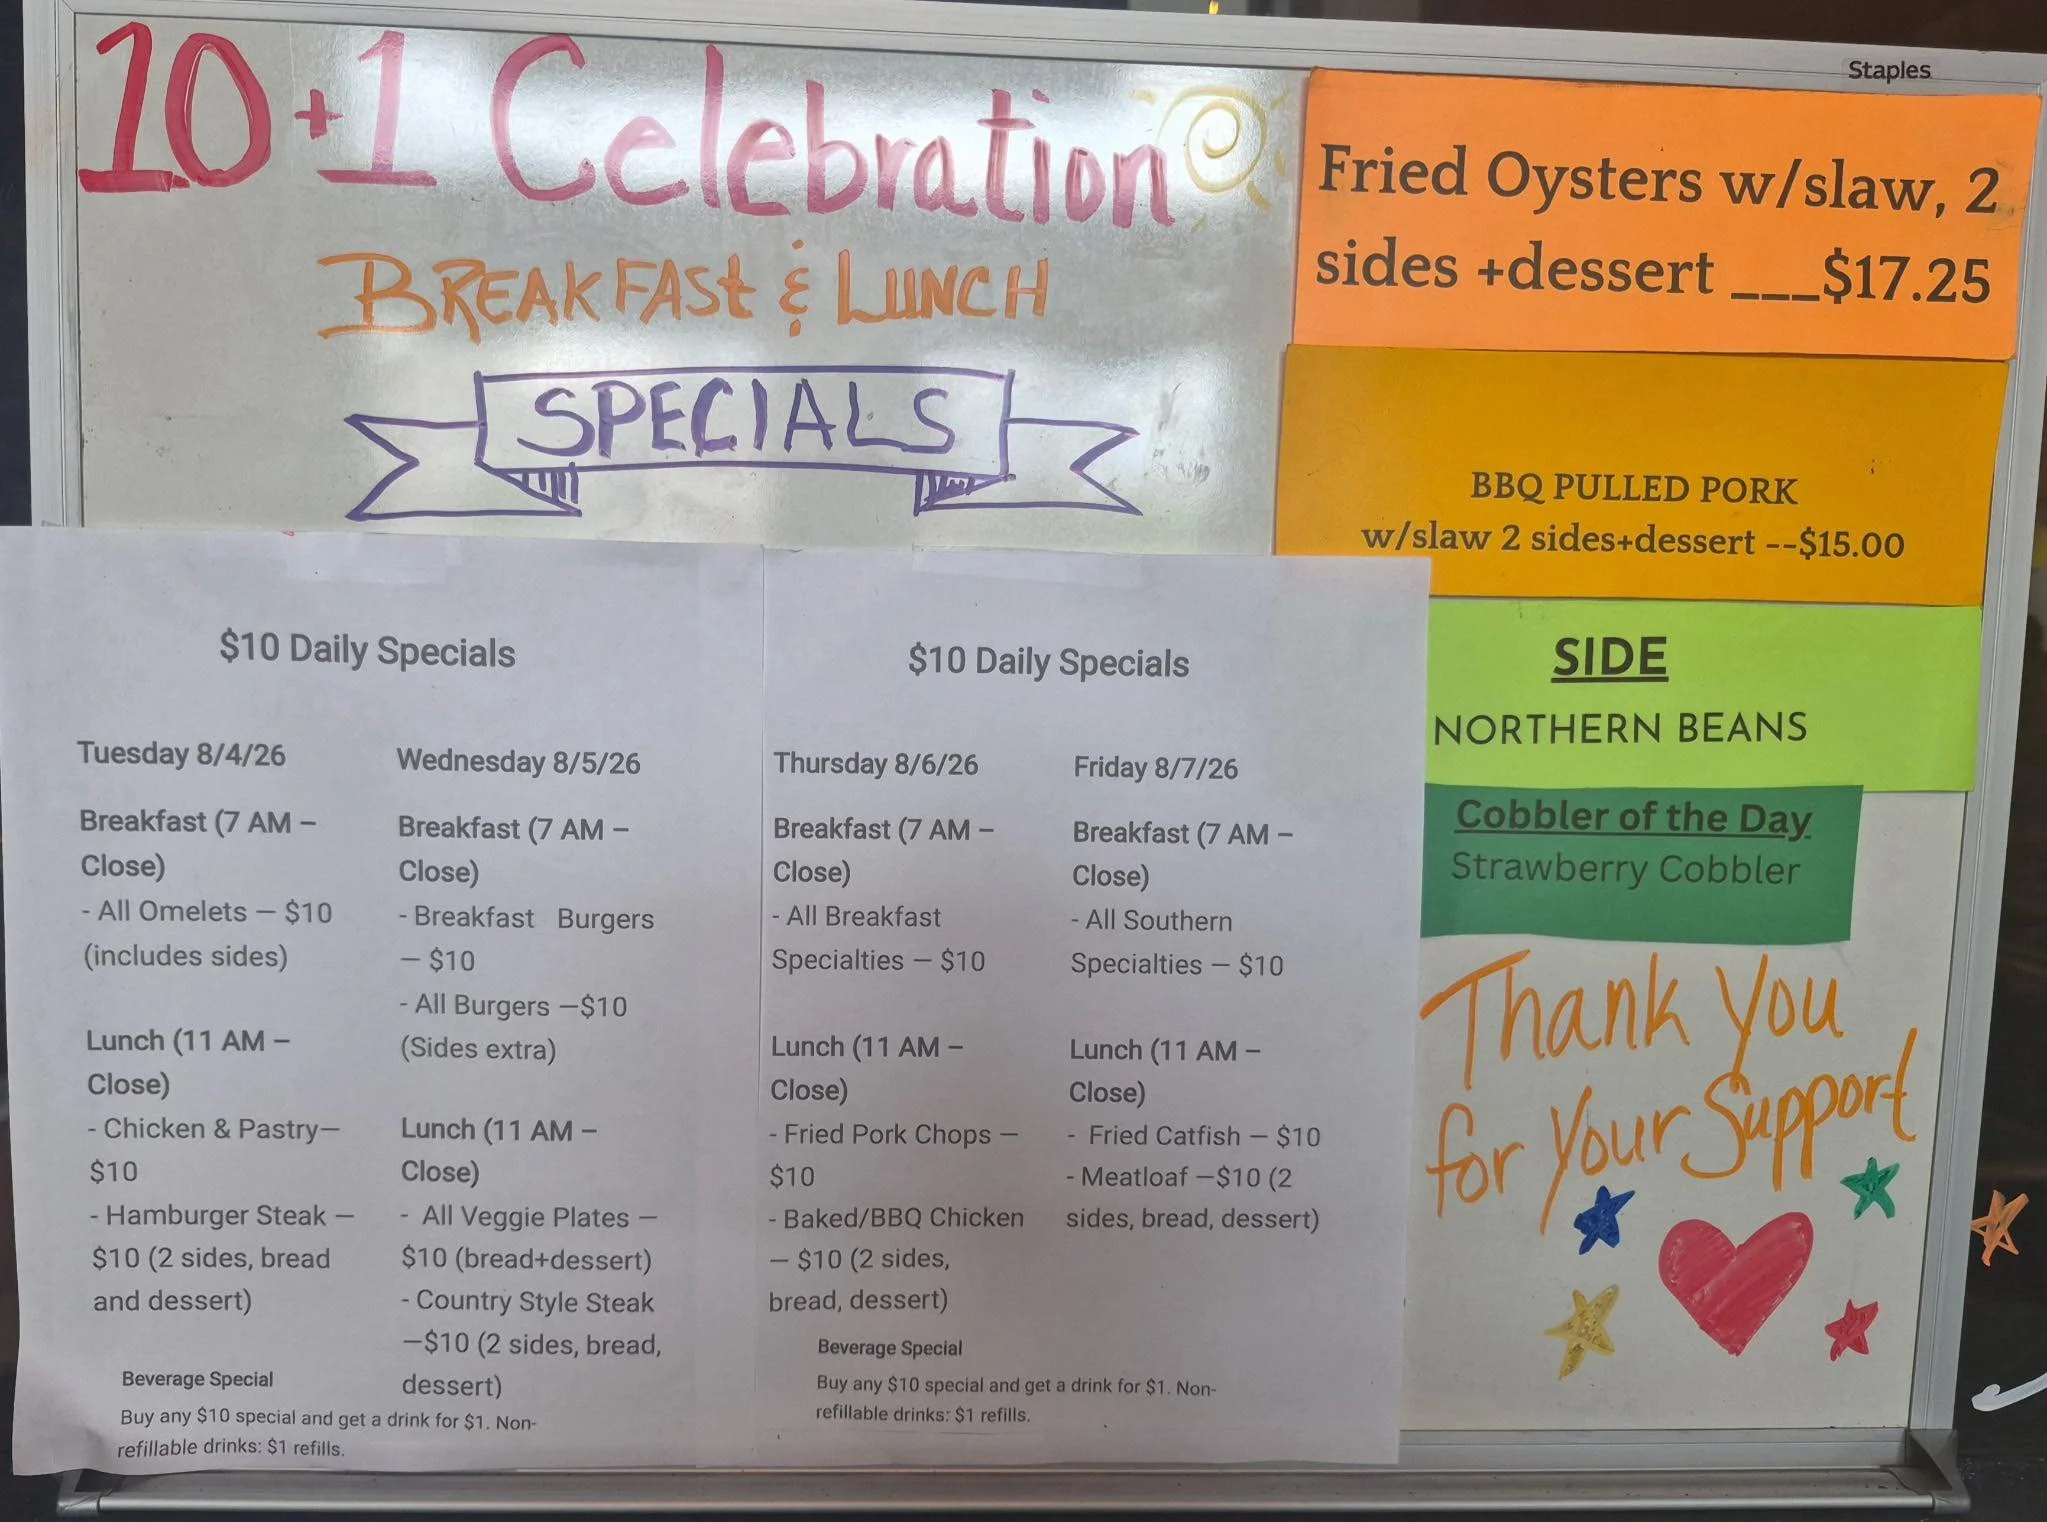 10+1 Celebration
BREAKFASt & LUNCH
SPECIALS
Staples
Fried Oysters w/slaw, 2
sides +dessert ___$17.25
BBQ PULLED PORK
w/slaw 2 sides+dessert --$15.00
SIDE
NORTHERN BEANS
Cobbler of the Day
Strawberry Cobbler
Thank you
for Your Support
$10 Daily Specials
Tuesday 8/4/26
Breakfast (7 AM –
Close)
- All Omelets — $10
(includes sides)
Lunch (11 AM –
Close)
- Chicken & Pastry—
$10
- Hamburger Steak —
$10 (2 sides, bread
and dessert)
Wednesday 8/5/26
Breakfast (7 AM –
Close)
- Breakfast Burgers
— $10
- All Burgers —$10
(Sides extra)
Lunch (11 AM –
Close)
- All Veggie Plates —
$10 (bread+dessert)
- Country Style Steak
—$10 (2 sides, bread,
dessert)
Beverage Special
Buy any $10 special and get a drink for $1. Non-
refillable drinks: $1 refills.
$10 Daily Specials
Thursday 8/6/26
Breakfast (7 AM –
Close)
- All Breakfast
Specialties — $10
Lunch (11 AM –
Close)
- Fried Pork Chops —
$10
- Baked/BBQ Chicken
— $10 (2 sides,
bread, dessert)
Friday 8/7/26
Breakfast (7 AM –
Close)
- All Southern
Specialties — $10
Lunch (11 AM –
Close)
- Fried Catfish — $10
- Meatloaf —$10 (2
sides, bread, dessert)
Beverage Special
Buy any $10 special and get a drink for $1. Non-
refillable drinks: $1 refills.